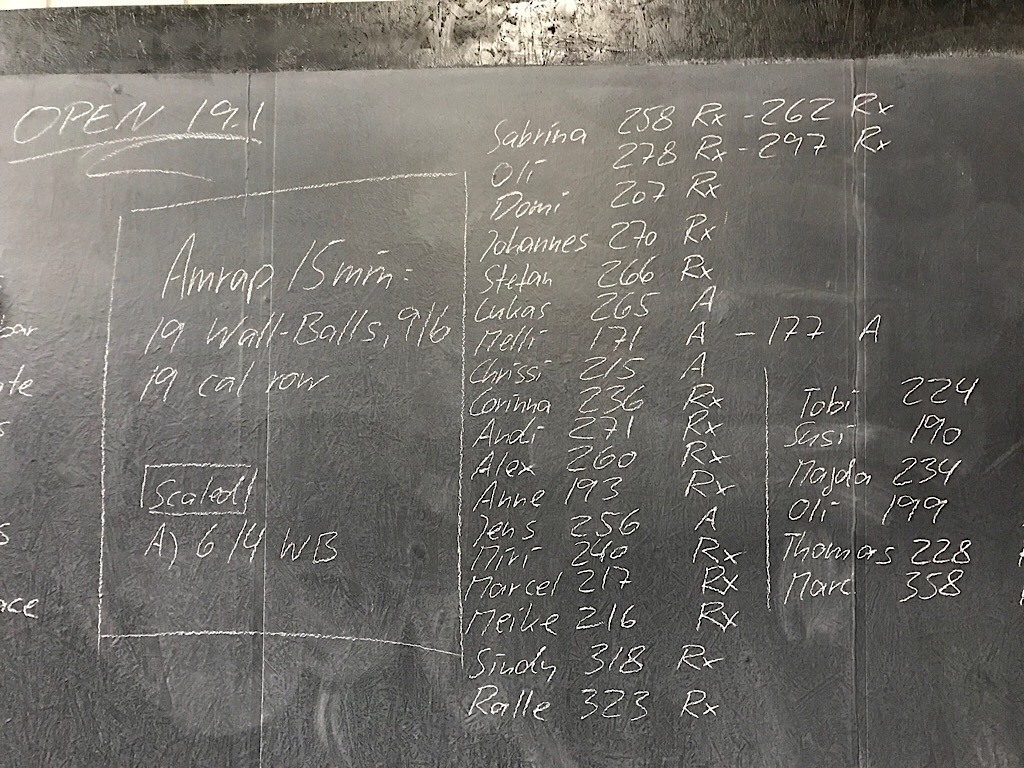 OPEN 19.1
Amrap 15min:
19 Wall-Balls, 9/6
19 cal row
Scaled
A) 6/4 WB
Sabrina 258 Rx - 262 Rx
Oli 278 Rx - 297 Rx
Domi 207 Rx
Johannes 270 Rx
Stefan 266 Rx
Lukas 265 A
Melli 171 A - 177 A
Chrissi 215 A
Corinna 236 Rx
Andi 271 Rx
Alex 260 Rx
Anne 193 Rx
Jens 256 A
Miri 240 Rx
Marcel 217 Rx
Meike 216 Rx
Sindy 318 Rx
Ralle 323 Rx
Tobi 224
Susi 190
Magda 234
Oli 199
Thomas 228
Marc 358